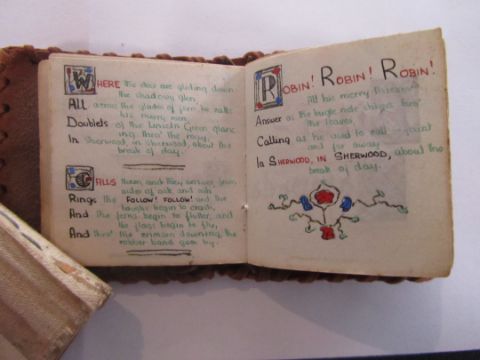 WHERE the deer are gliding down
the shadowy glen,
All across the glades of fern he calls
his merry men,
Doublets of the Lincoln Green glanc
ing thro' the may,
In Sherwood, in Sherwood, about the
break of day.
CALLS them and they answer, from
aisles of oak and ash
Rings the FOLLOW! FOLLOW! and the
boughs begin to crash,
And the ferns begin to flutter, and
the flags begin to fly,
And thro' the crimson dawning, the
robber band goes by.
ROBIN! ROBIN! ROBIN!
All his merry thieves
Answer as the bugle note shivers thro'
the leaves,
Calling as he used to call — faint
and far away
In SHERWOOD, IN SHERWOOD, about the
break of day.